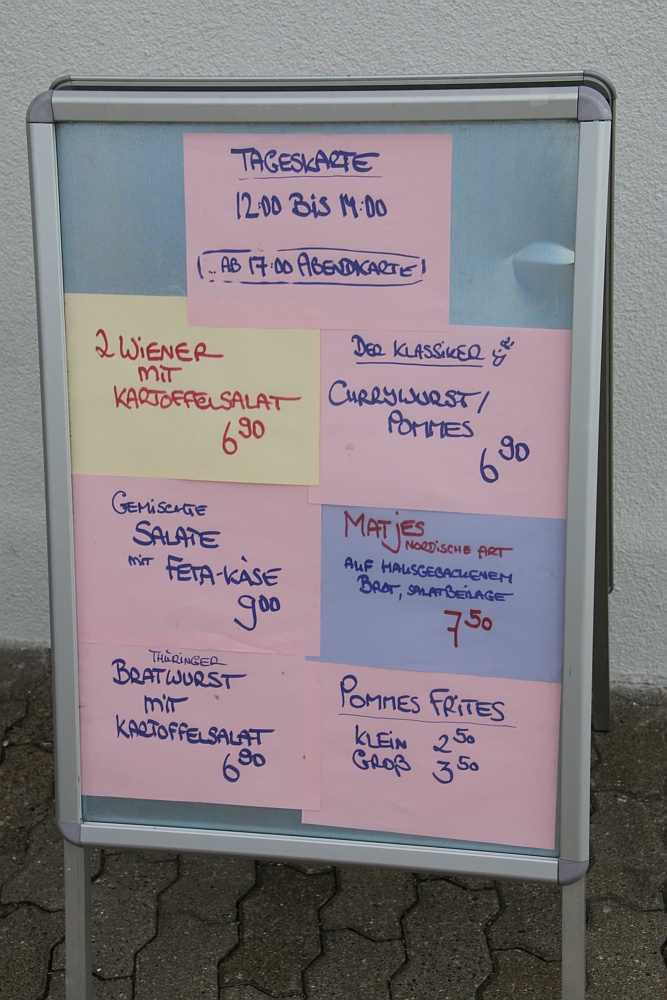 TAGESKARTE
12:00 BIS 14:00
(.. AB 17:00 ABENDKARTE!)
2 WIENER
MIT
KARTOFFELSALAT
6 90
DER KLASSIKER
CURRYWURST/
POMMES
6 90
GEMISCHTE
SALATE
MIT FETA-KÄSE
9 00
MATJES
NORDISCHE ART
AUF HAUSGEBACKENEM
BROT, SALATBEILAGE
7 50
THÜRINGER
BRATWURST
MIT
KARTOFFELSALAT
6 90
POMMES FRITES
KLEIN 2 50
GROß 3 50